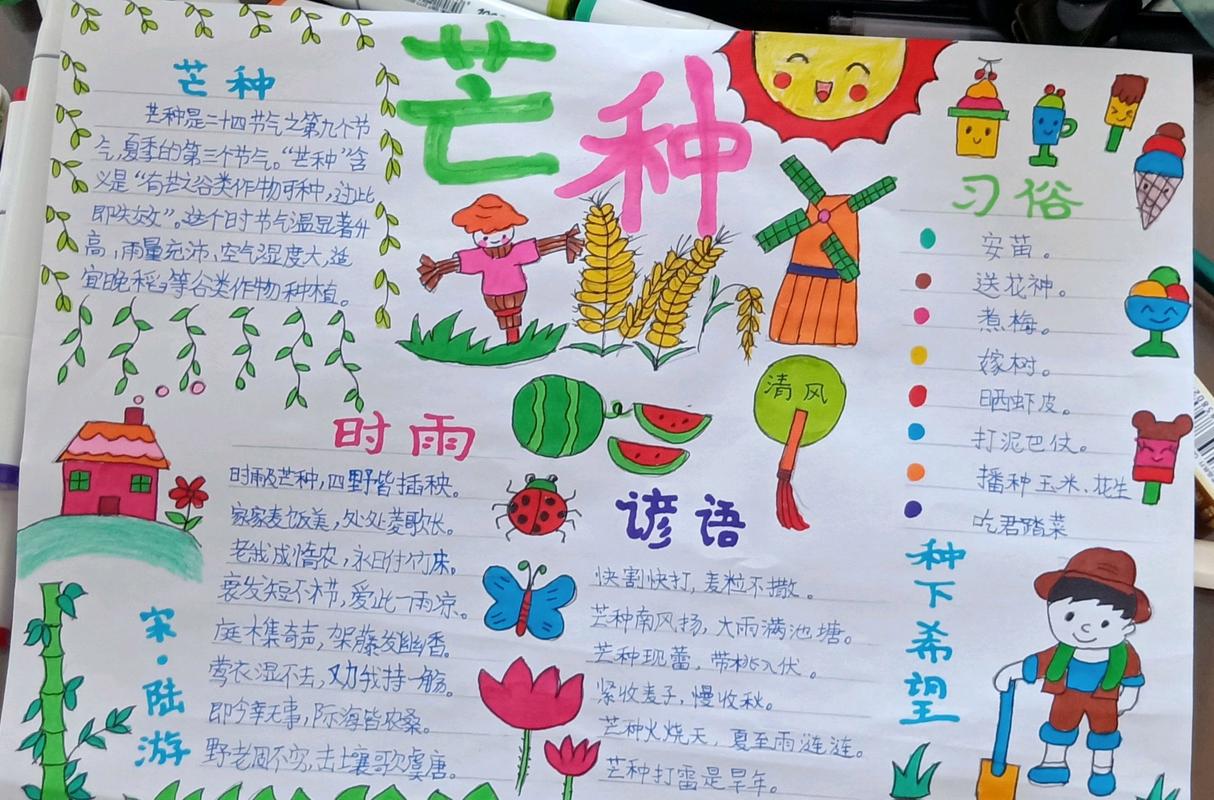 芒种
芒种
芒种是二十四节气之第九个节
气,夏季的第三个节气。“芒种”含
义是“有芒之谷类作物可种,过此
即失效”。这个时节气温显著升
高,雨量充沛、空气湿度大,适
宜晚稻等谷类作物种植。
习俗
安苗。
送花神。
煮梅。
嫁树。
晒虾皮。
打泥巴仗。
播种玉米、花生
吃君踏菜
清风
时雨
时雨及芒种,四野皆插秧。
家家麦饭美,处处菱歌长。
老我成惰农,永日付竹床。
衰发短不栉,爱此一雨凉。
庭木集奇声,架藤发幽香。
莺衣湿不去,劝我持一觞。
即今幸无事,际海皆农桑。
野老固不穷,击壤歌虞唐。
宋·陆游
谚语
快割快打,麦粒不撒。
芒种南风扬,大雨满池塘。
芒种现蕾,带桃入伏。
紧收麦子,慢收秋。
芒种火烧天,夏至雨涟涟。
芒种打雷是旱年。
种下希望